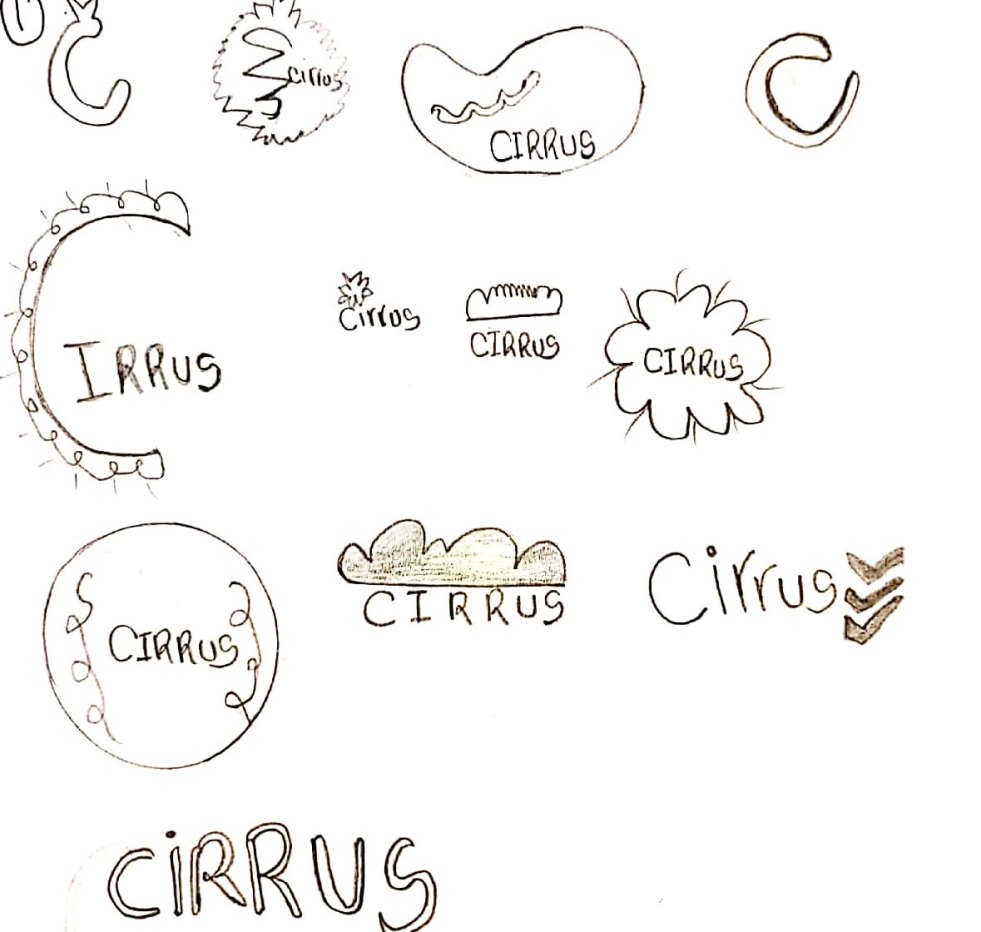 C
Cirrus
CIRRUS
C
CIRRUS
Cirrus
CIRRUS
CIRRUS
CIRRUS
CIRRUS
Cirrus
CiRRUS